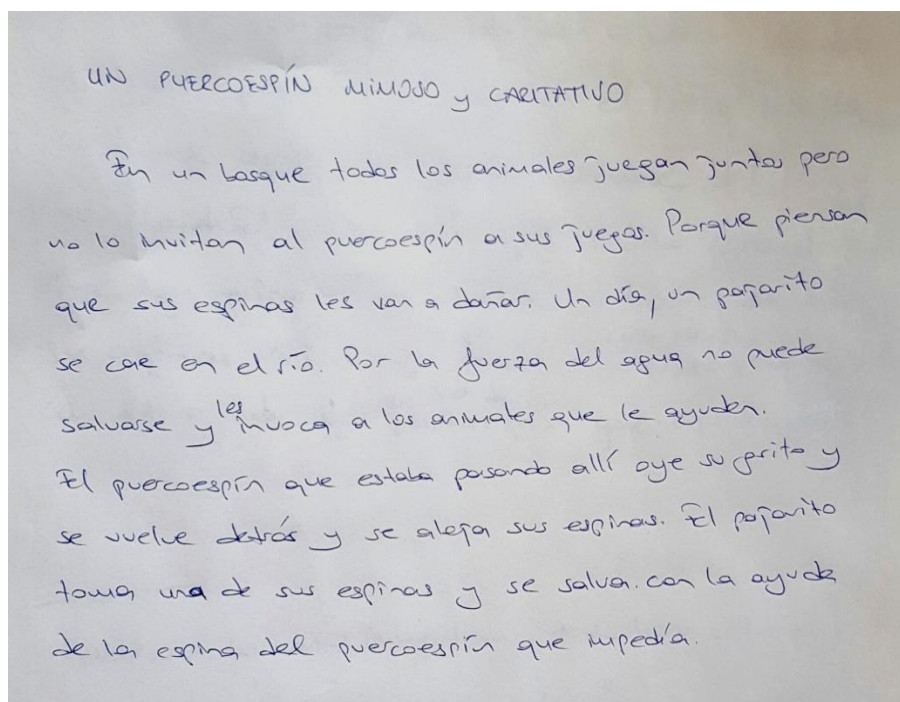 UN PUERCOESPÍN MIMOSO y CARITATIVO
En un bosque todos los animales juegan juntos pero
no lo invitan al puercoespín a sus juegos. Porque piensan
que sus espinas les van a dañar. Un día, un pajarito
se cae en el río. Por la fuerza del agua no puede
salvarse y les invoca a los animales que le ayuden.
El puercoespín que estaba pasando allí oye su grito y
se vuelve detrás y se aleja sus espinas. El pajarito
toma una de sus espinas y se salva. con la ayuda
de la espina del puercoespín que impedía.